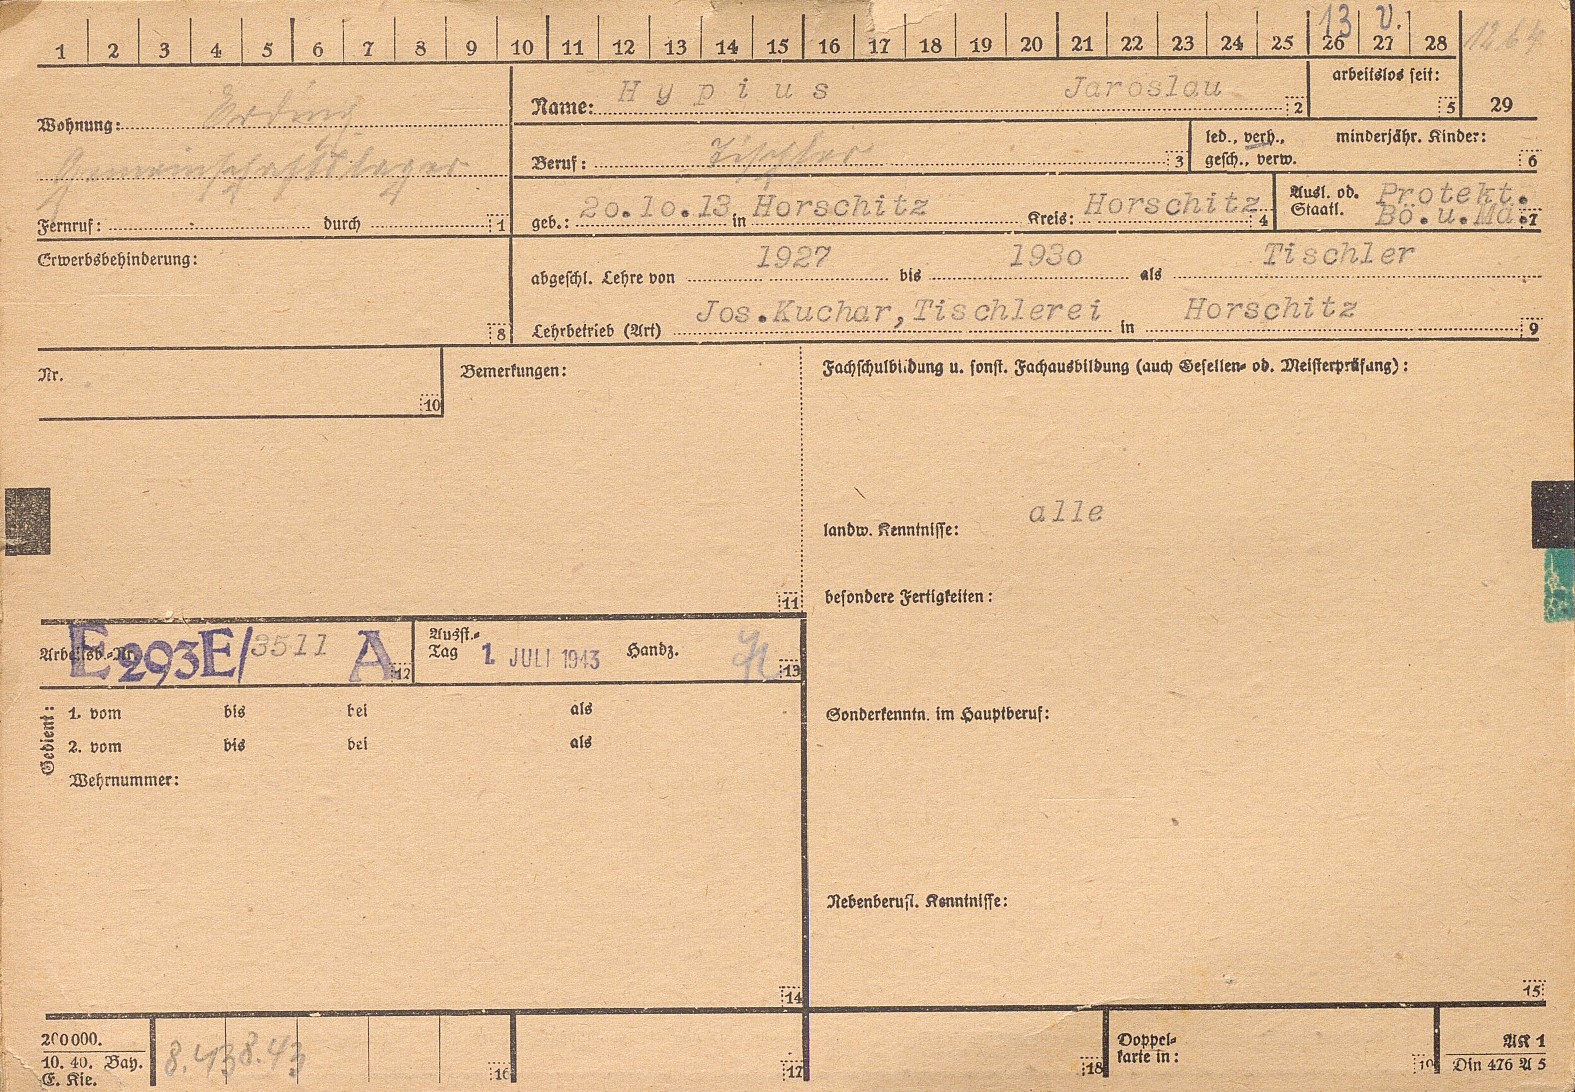 1 2 3 4 5 6 7 8 9 10 11 12 13 14 15 16 17 18 19 20 21 22 23 24 25 26 27 28 1264
13 V.
Wohnung: Erding
Gemeinschaftslager
Fernruf: durch 1
Name: Hypius Jaroslau 2
arbeitslos seit: 5
29
Beruf: Tischler 3
led., verh., minderjähr. Kinder:
gesch., verw. 6
geb.: 20.10.13 in Horschitz Kreis: Horschitz 4
Ausl. od. Protekt.
Staatl. Bö.u.Mä. 7
Erwerbsbehinderung:
8
abgeschl. Lehre von 1927 bis 1930 als Tischler
Lehrbetrieb (Art) Jos.Kuchar,Tischlerei in Horschitz 9
Nr.
10
Bemerkungen:
11
Fachschulbildung u. sonst. Fachausbildung (auch Gesellen- od. Meisterprüfung):
landw. Kenntnisse: alle
besondere Fertigkeiten:
Arbeitsb.-Nr. E 293E/3511 A 12
Ausst.-
Tag 1. JULI 1943 Handz. 13
Gedient:
1. vom bis bei als
2. vom bis bei als
Wehrnummer:
14
Sonderkenntn. im Hauptberuf:
Nebenberufl. Kenntnisse:
15
200000.
10. 40. Bay.
E. Kie.
8.43 8.43
16
17
18
Doppel-
karte in:
19
AK 1
Din 476 A 5